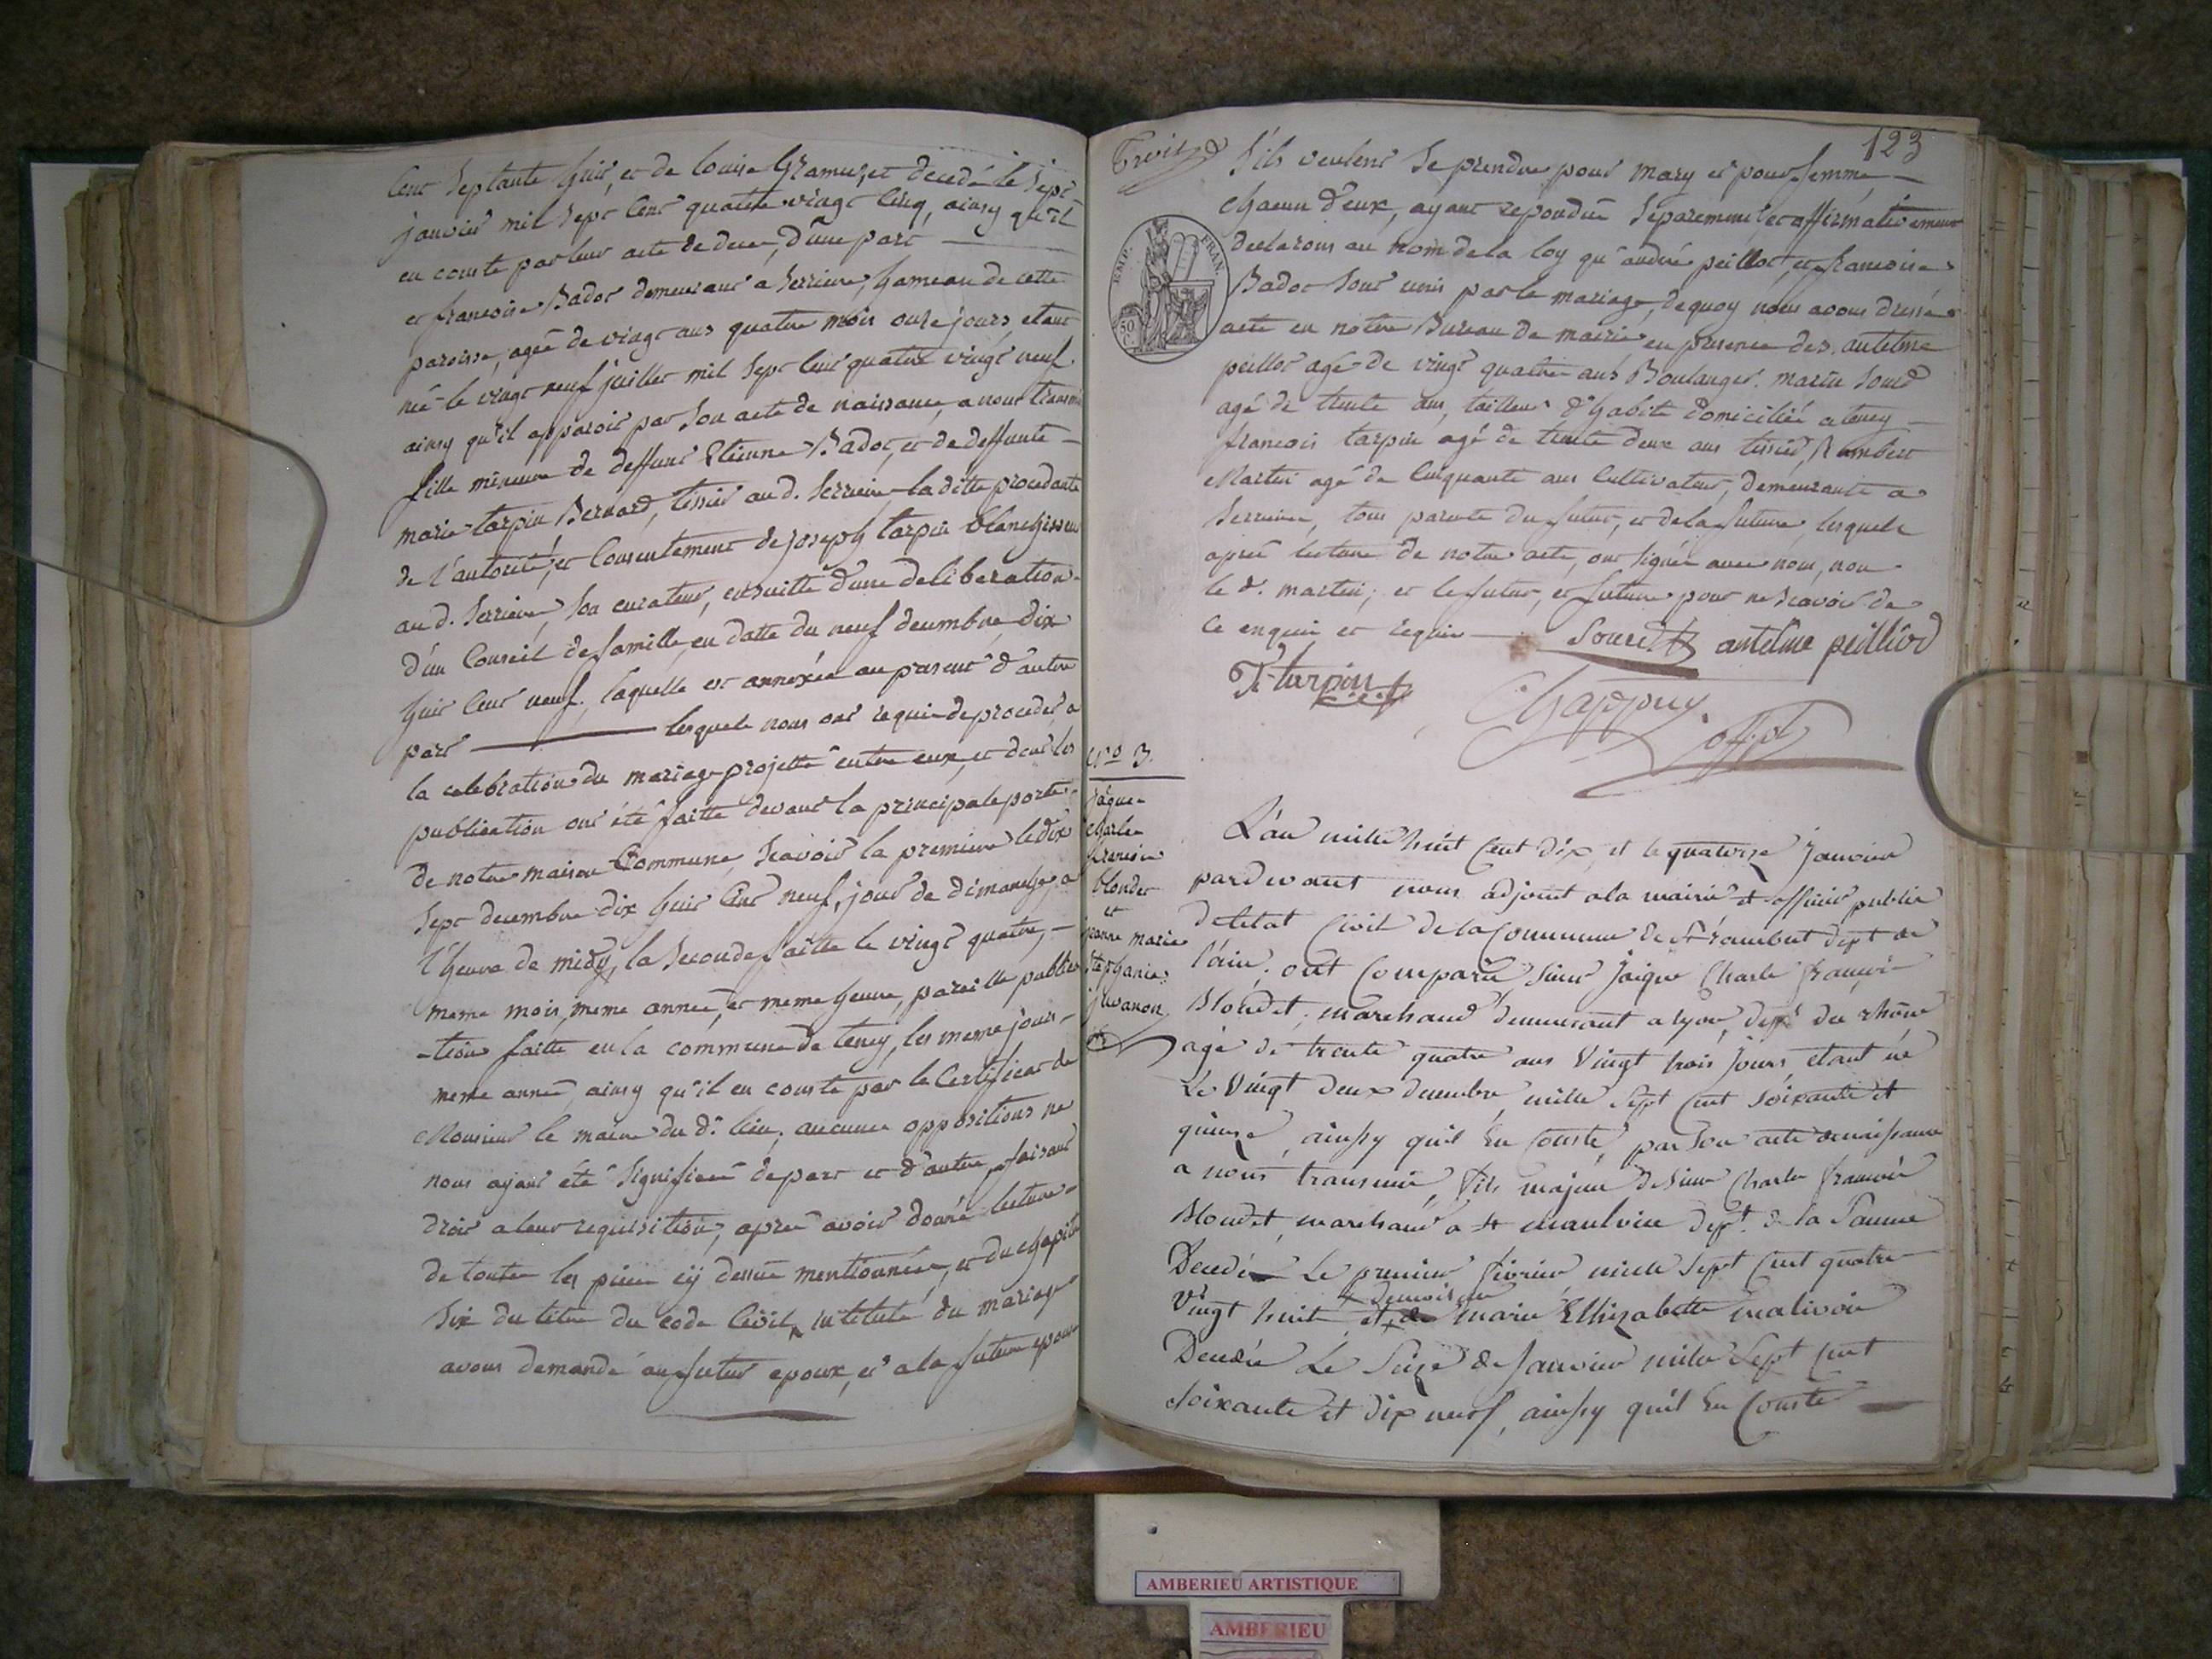 Cent Septante huit, et de louise Gramuset decedé le Sept
janvier mil Sept Cent quatre vingt Cinq, ainsy qu'il
en conste par leur acte de deces, d'une part
et francoise Badot demeurant a Serriere, hameau de cette
paroisse, agée de vingt ans quatre mois onze jours, etant
née le vingt neuf juillet mil Sept Cent quatre vingt neuf
ainsy qu'il apparoit par Son acte de naissance, a nous transmi
fille mineure de deffunt Etienne Badot, et de deffunte
marie tarpin Bernard, tissier aud. Serriere la ditte procedante
de l'autorité, et Consentement de joseph tarpin blanchisseur
au d. Serriere, Son curateur, ensuitte d'une deliberation
d'un Conseil de famille, en datte du neuf decembre dix
huit Cent neuf, laquelle est annexée au present d'autre
part lesquels nous ont requis de proceder a
la celebration du mariage projetté entre eux, et dont les
publication ont été faitte devant la principale porte
de notre maison Commune, Scavoir la premiere le dix
Sept decembre dix huit Cent neuf, jour de dimanche, a
l'heure de midy, la Seconde faitte le vingt quatre,
meme mois, meme année, et meme heure, pareille publica
-tion faitte en la commune de tenay, les meme jours
meme année ainsy qu'il en conste par le Certificat de
Monsieur le maire du d. lieu, aucunes oppositions ne
nous ayant été Signifiées de part et d'autre, faisant
droit a leur requisition, apres avoir donné lecture
de toutes les pieces cÿ dessus mentionnées, et du chapitre
Six du titre du code Civil, intitulé du mariage
avons demandé au futur epoux, et a la future epouse
Trois
123
S'ils veulent Se prendre pour mary et pour femme
chacun d'eux, ayant repondu Séparement et affirmativement
declarons au nom de la loy qu'andré peillot, et francoise
Badot Sont unis par le mariage, de quoy nous avons dressé
acte en notre Bureau de mairie en presence des. antelme
peillot agé de vingt quatre ans Boulanger. martin Souret
agé de trente ans, tailleur d'habits domicilié a tenay
francois tarpin agé de trente deux ans tissier, Rambert
Martin agé de Cinquante ans Cultivateur, demeurants a
Serriere, tous parents du futur, et de la future, lesquels
apres lecture de notre acte, ont Signés avec nous, non
le d. martin, et le futur, et future pour ne Scavoir de
ce enquis et requis
Souret antelme peilliod
f. turpin
Chappuy
off. pb
EMP. FRAN.
50 C.
N.o 3.
jaque
charle
francois
blondet
et
jeanne marie
Stephanie
juvanon
L'an mille huit Cent dix, et le quatorze janvier
pardevant nous adjoint a la mairie et officier public
de letat Civil de la Commune de St rambert dept de
l'ain, ont Comparu Sieur jaique Charle francois
Blondet, marchand demeurant a lyon, dept du rhône
agé de trente quatre ans Vingt trois jours, etant né
Le Vingt deux decembre mille Sept Cent Soixante et
quinze, ainssy quil En Conste, par Son acte de naissance
a nous transmis, fils majeur de Sieur Charle francois
Blondet, marchand a
Decedé Le premier février mille Sept Cent quatre
Vingt huit, et de marie Elhizabette malivoir
Demoiselle
Decedée Le Seize de janvier mille Sept Cent
Soixante et dix neuf, ainssy quil En Conste
AMBERIEU ARTISTIQUE
AMBERIEU